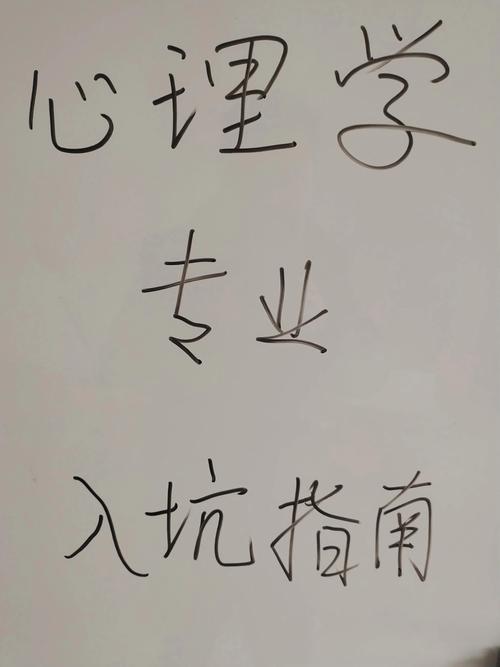 心理学
专业
入坑指南